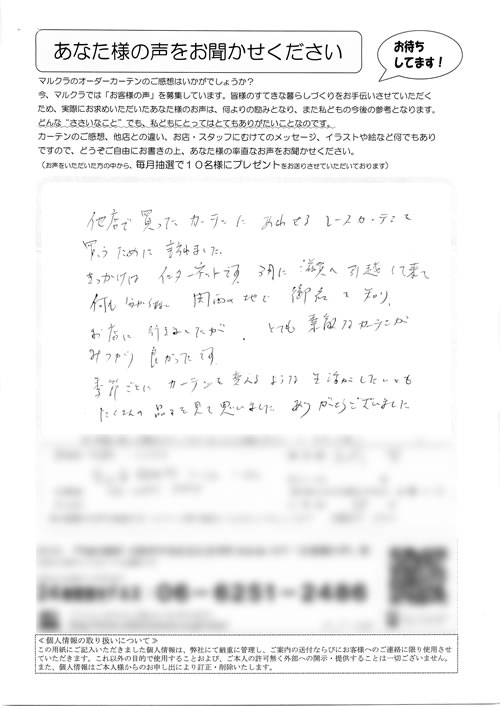 あなた様の声をお聞かせください
お待ち
してます！
マルクラのオーダーカーテンのご感想はいかがでしょうか？
今、マルクラでは「お客様の声」を募集しています。皆様のすてきな暮らしづくりをお手伝いさせていただく
ため、実際にお求めいただいたあなた様のお声は、何よりの励みとなり、また私どもの今後の参考となります。
どんな“ささいなこと”でも、私どもにとってはとてもありがたいことなのです。
カーテンのご感想、他店との違い、お店・スタッフにむけてのメッセージ、イラストや絵など何でもあり
ですので、どうぞご自由にお書きの上、あなた様の率直なお声をお聞かせください。
（お声をいただいた方の中から、毎月抽選で１０名様にプレゼントをお送りさせていただいております）
他店で買ったカーテンにあわせるレースカーテンを
買うために訪れました。
きっかけはインターネットです。3月に滋賀へ引越して来て
何も分からない関西の地で御店を知り、
お店に行きましたが、とても素敵なカーテンが
みつかり良かったです。
季節ごとにカーテンを変えるような生活がしたいとも
たくさんの品々を見て思いました ありがとうございました
06-6251-2486
≪個人情報の取り扱いについて≫
この用紙にご記入いただきました個人情報は、弊社にて厳重に管理し、ご案内の送付ならびにお客様へのご連絡に限り使用させ
ていただきます。これ以外の目的で使用することおよび、ご本人の許可無く外部への開示・提供することは一切ございません。
また、個人情報はご本人様からのお申し出により訂正・削除いたします。